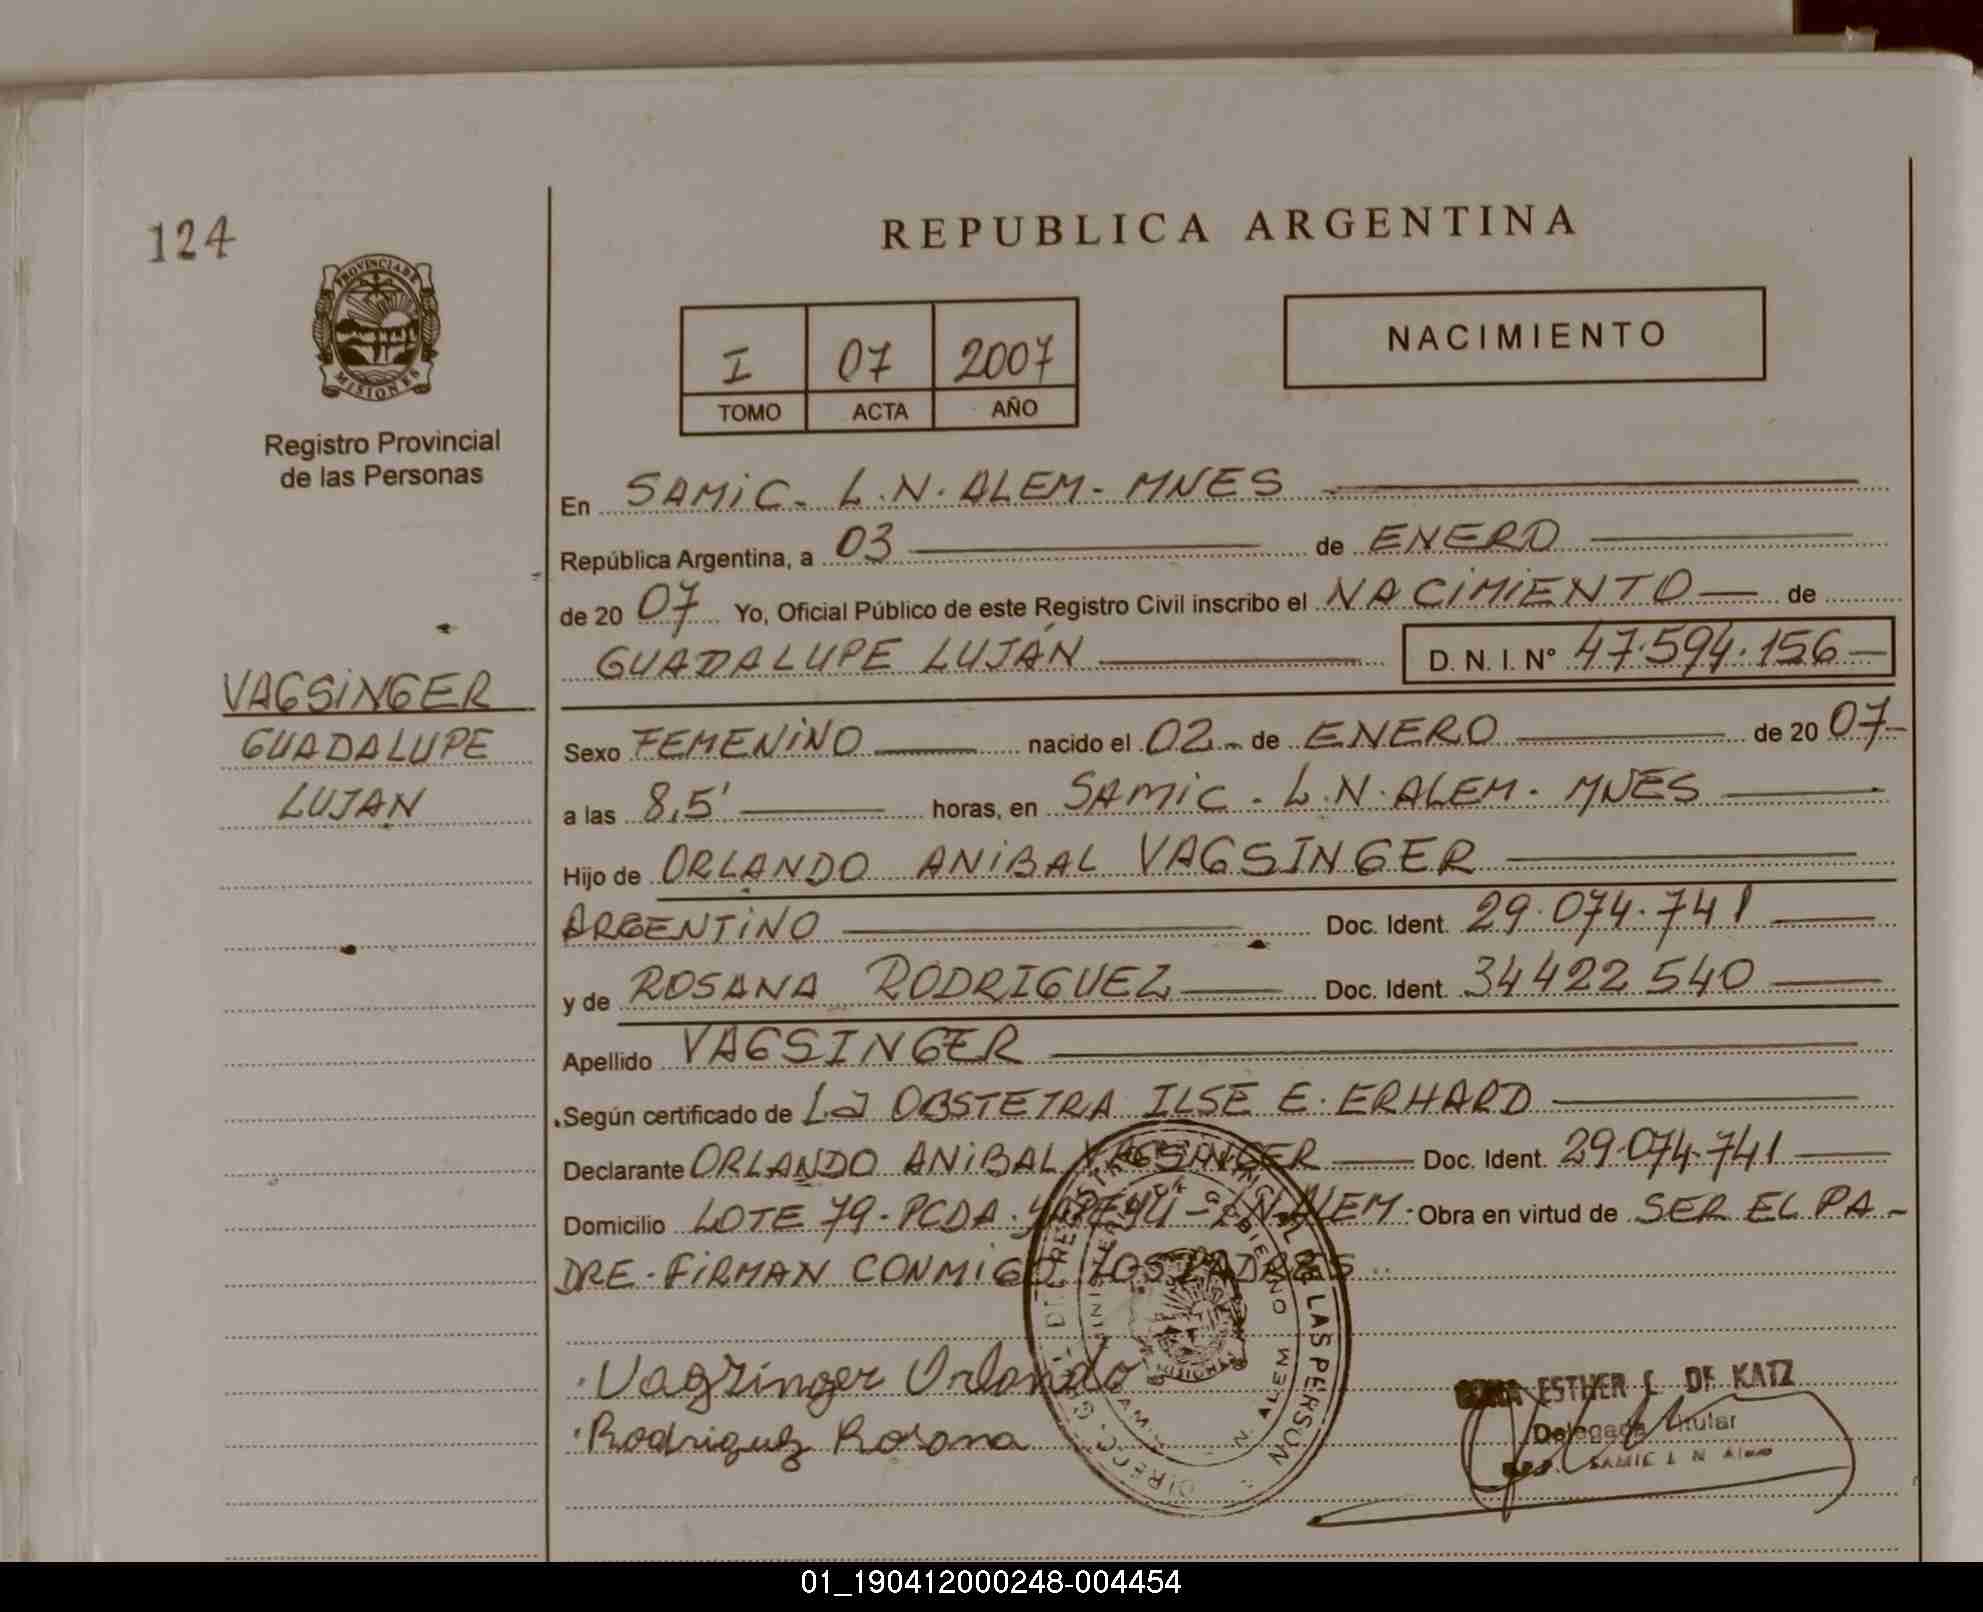 124
REPUBLICA ARGENTINA
PROVINCIA DE
MISIONES
Registro Provincial
de las Personas
I 07 2007
TOMO ACTA AÑO
NACIMIENTO
En SAMIC - L.N. ALEM - MNES
República Argentina, a 03 de ENERO
de 20 07 Yo, Oficial Público de este Registro Civil inscribo el NACIMIENTO de
GUADALUPE LUJÁN D. N. I. Nº 47.594.156
VAGSINGER
GUADALUPE
LUJAN
Sexo FEMENINO nacido el 02 de ENERO de 20 07
a las 8,5' horas, en SAMIC - L.N. ALEM - MNES
Hijo de ORLANDO ANIBAL VAGSINGER
ARGENTINO Doc. Ident. 29.074.741
y de ROSANA RODRIGUEZ Doc. Ident. 34422540
Apellido VAGSINGER
Según certificado de La OBSTETRA ILSE E. ERHARD
Declarante ORLANDO ANIBAL VAGSINGER Doc. Ident. 29.074.741
Domicilio LOTE 79 - PCDA. YAPEYÚ - L.N. ALEM - Obra en virtud de SER EL PA-
DRE - FIRMAN CONMIGO LOS PADRES
Vagzinger Orlando
Rodriguez Rosana
ESTHER DE KATZ
Delegada Titular
SAMIC L N Alem
01_190412000248-004454